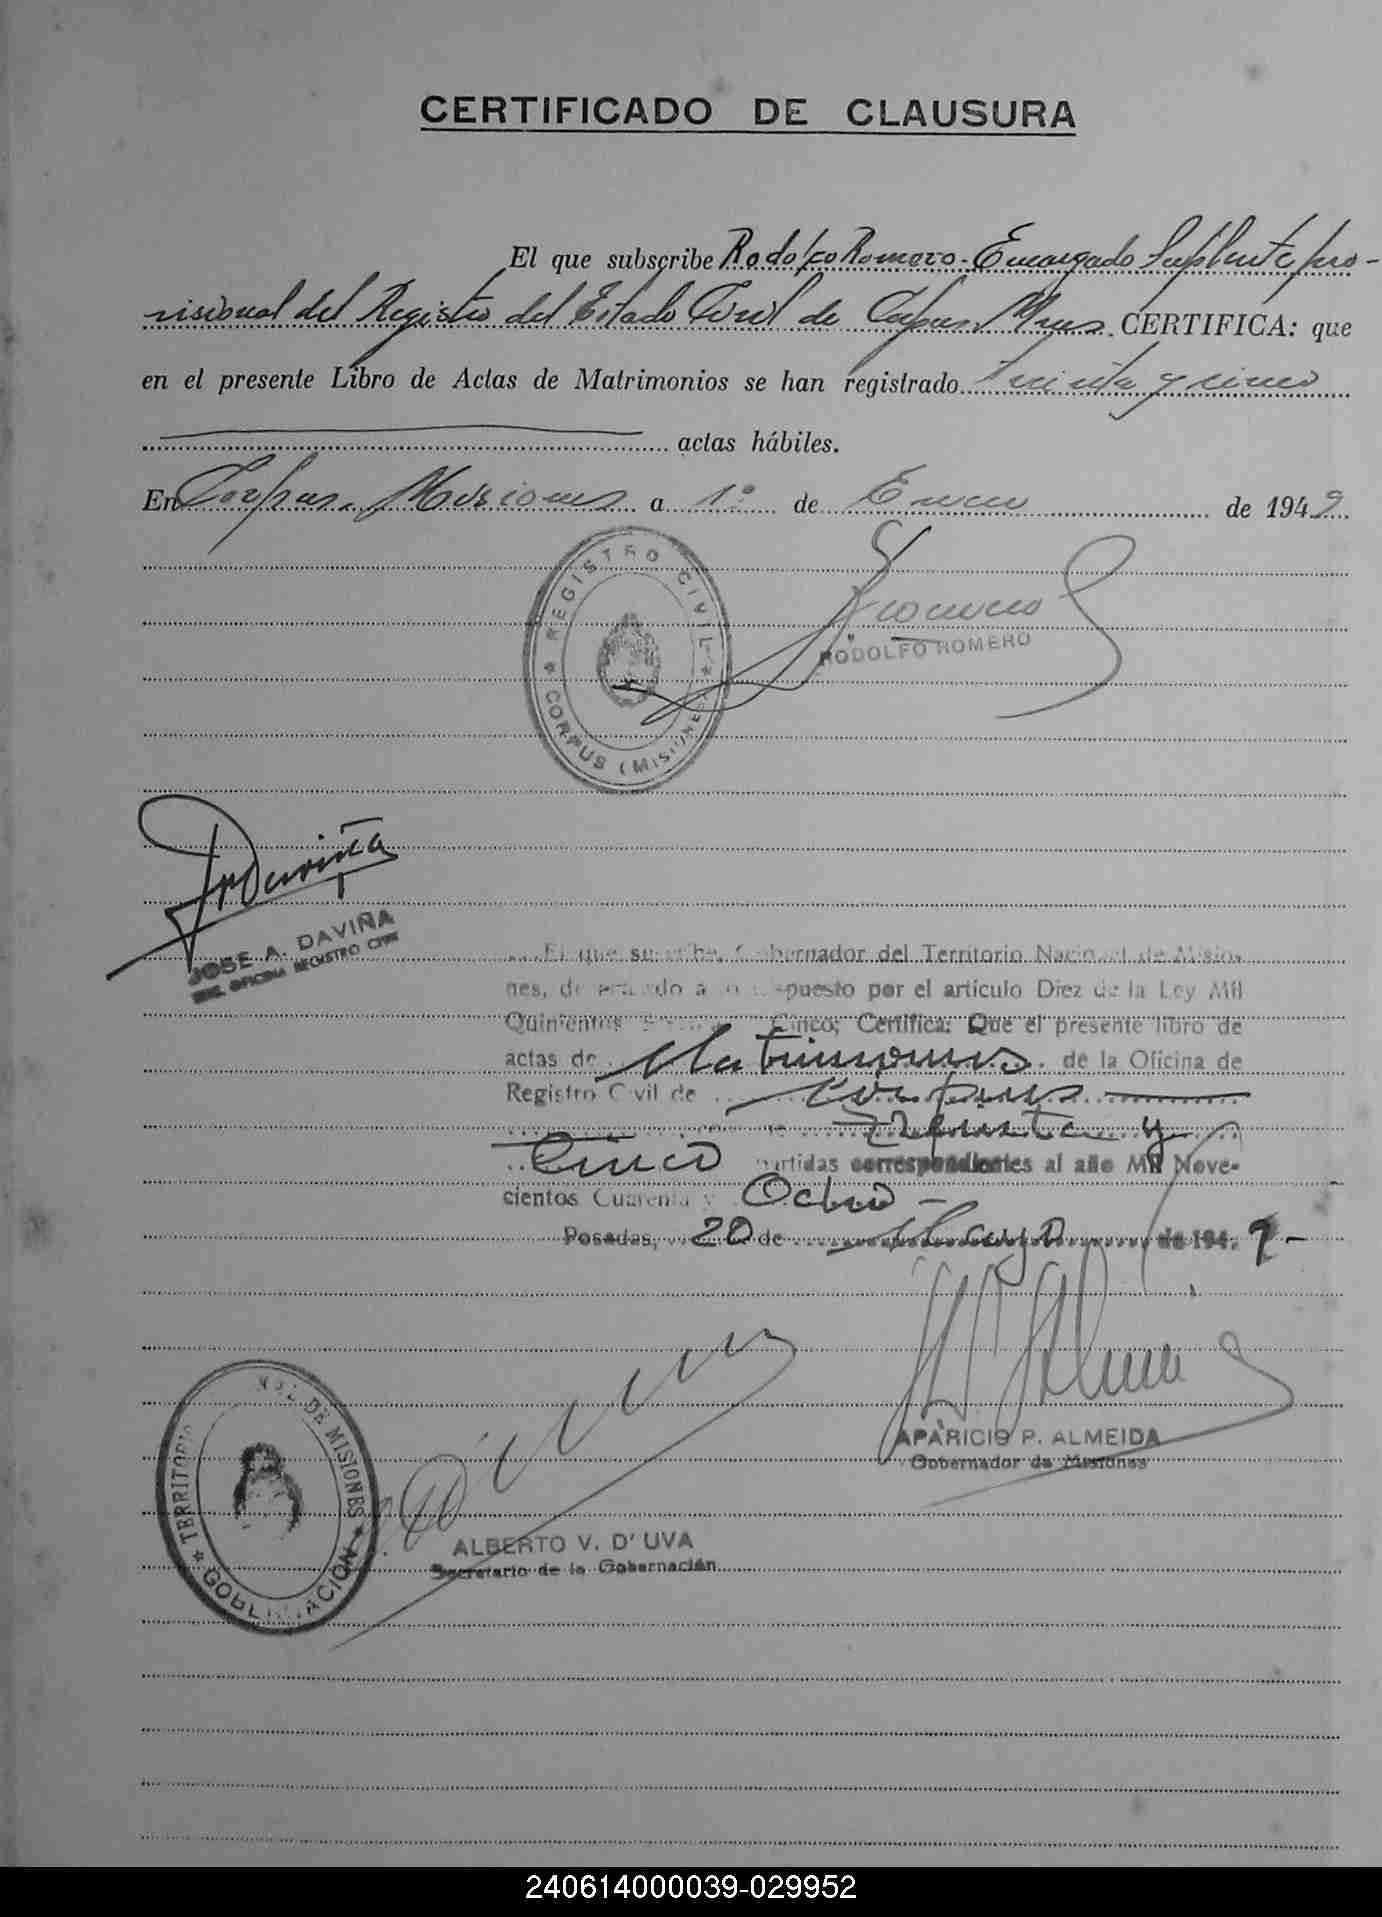 CERTIFICADO DE CLAUSURA
El que subscribe Rodolfo Romero - Encargado Suplente pro-
visional del Registro del Estado Civil de Corpus Mnes. CERTIFICA: que
en el presente Libro de Actas de Matrimonios se han registrado treinta y cinco
actas hábiles.
En Corpus. Misiones a 1º de Enero de 1949
REGISTRO CIVIL
CORPUS (MISIONES)
Romero
RODOLFO ROMERO
JADaviña
JOSE A. DAVIÑA
OFICINA REGISTRO CIVIL
El que suscribe, Gobernador del Territorio Nacional de Misio-
nes, de acuerdo a lo dispuesto por el artículo Diez de la Ley Mil
Quinientos Cinco; Certifica: Que el presente libro de
actas de Matrimonios de la Oficina de
Registro Civil de Corpus
Treinta y
Cinco partidas correspondientes al año Mil Nove-
cientos Cuarenta y Ocho -
Posadas, 20 de Mayo de 1949-
APARICIO P. ALMEIDA
Gobernador de Misiones
TERRITORIO NAL. DE MISIONES
GOBERNACION
ALBERTO V. D' UVA
Secretario de la Gobernación
240614000039-029952